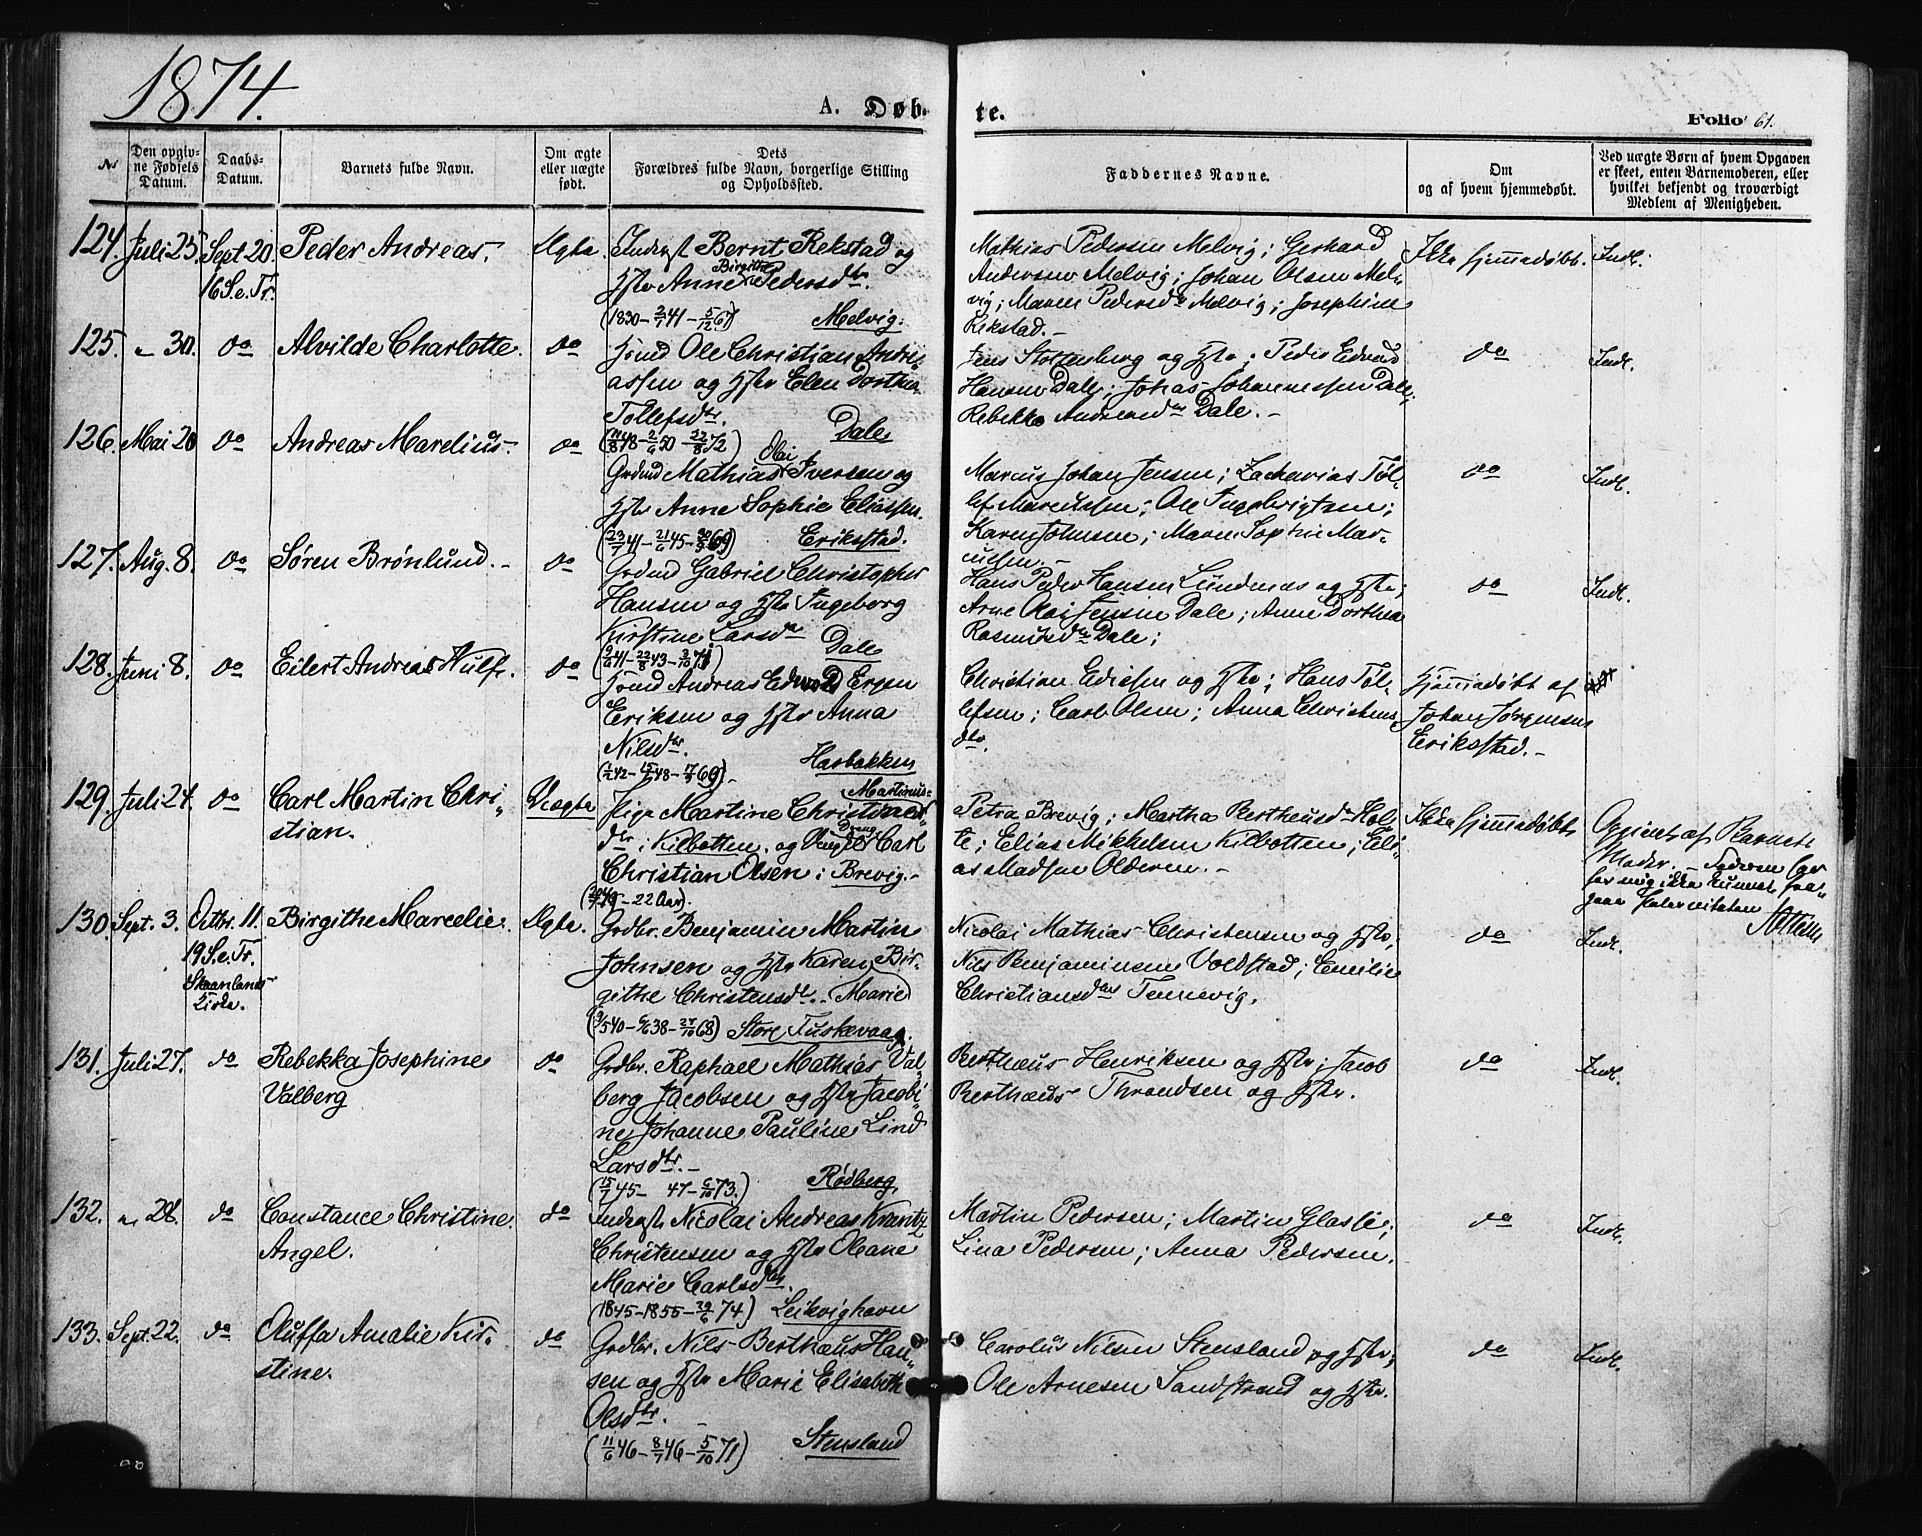 1874.
A. Døbte.
Folio 61.
№
Den opgivne Fødsels Datum.
Daabs-Datum.
Barnets fulde Navn.
Om ægte eller uægte født.
Dets Forældres fulde Navn, borgerlige Stilling og Opholdssted.
Faddernes Navne.
Om og af hvem hjemmedøbt.
Ved uægte Børn af hvem Opgaven er skeet, enten Barnemoderen, eller hvilket bekjendt og troværdigt Medlem af Menigheden.
124. Juli 25 Sept. 20. Peder Andreas. Ægte Inderst Bernt Rekstad og
16 S.e.Tr. Hstr Anne Birgithe Pedersdtr.
(1830 – 2/1 41 – 5/12 67) Melvig.
Mathias Pedersen Melvig; Gerhard
Andersen Melvig; Johan Olsen Mel-
vig; Maren Pedersdtr Melvig; Josephine
Rekstad. –
Ikke hjemmedøbt. Indl.
125. " 30. do Alvilde Charlotte. do Hsmd Ole Christian Andre-
assen og Hstr Elen Dorthea
Tollefsdtr.
Dale
Jens Stoltenberg og Hstr; Peder Edvard
Hansen Dale; Johas Johannessen Dale;
Rebekka Andreasdtr Dale. –
do Indl.
126. Mai 20 do Andreas Marelius – do Grdmd Mathias Olai Iversen og
Hstr Anne Sophie Eliassen.
Erikstad.
Marcus Johan Jensen; Zacharias Tol-
lef Marcussen; Ole Ingebrigtsen;
Karen Johnsen; Maren Sophie Mar-
cussen. –
do Indl.
127. Aug. 8. do Søren Brønlund. – do Grdmd Gabriel Christopher
Hansen og Hstr Ingeborg
Kirstine Larsdtr
Dale
Hans Peder Hansen Lundenæs og Hstr;
Arne Olai Jensen Dale; Anne Dorthea
Rasmusdtr Dale;
do Indl.
128. Juni 8. do Eilert Andreas Wulf. do Hsmd Andreas Edvard Ergen
Eriksen og Hstr Anna
Nilsdtr.
Harbakken
Christian Edissen og Hstr; Hans Tol-
lefsen; Carl Olsen; Anna Christens-
dtr.
Hjemmedøbt af
Johan Jørgensen
Erikstad. –
129. Juli 24. do Carl Martin Chri-
stian. Uægte Pige Martine Christine Martinus-
dtr i Kilbotten. og Ungkarl Carl
Christian Olsen i Brevig. –
(49 – 22 Aar).
Petra Brevig; Martha Bertheusdtr Hol-
te; Elias Mikkelsen Kilbotten; Eli-
as Madsen Olderen. –
Ikke hjemmedøbt
Opgivet af Barnets
Moder. – Faderen har
for mig ikke kunnet fra-
gaa Paterniteten
130. Sept. 3. Octbr. 11. Birgithe Marcelie. Ægte. Grdbr. Benjamin Martin
19 S.e.Tr.
Skaanlands
Kirke.
Johnsen og Hstr Karen Bir-
githe Christensdtr. Marie
Store Tuskevaag.
Nicolai Mathias Christensen og Hstr;
Nils Benjaminsen Voldstad; Emilie
Christiansdtr Tennevig.
do Indl.
131. Juli 27. do Rebekka Josephine
Valberg
do Grdbr. Raphael Mathias Val-
berg Jacobsen og Hstr Jacobi-
ne Johanne Pauline Lind
Larsdtr. –
(15/7 45 – 47 – 6/10 73.) Rødberg,
Berthæus Henriksen og Hstr; Jacob
Berthæus Thrandsen og Hstr.
do Indl.
132. " 28. do Constance Christine
Angel.
do Inderst Nicolai Andreas Krantz
Christensen og Hstr Oleane
Marie Carlsdtr.
(1845 – 1855 – 29/6 74) Leikvighavn
Martin Pedersen; Martin Glasø;
Lina Pedersen; Anna Pedersen.
do Indl.
133. Sept. 22. do Oluffa Amalie Kir-
stine.
do Grdbr. Nils Berthæus Han-
sen og Hstr Marie Elisabeth
Olsdtr. –
(11/6 46 – 8/7 46 – 5/10 71) Stensland
Carolus Nilsen Stensland og Hstr;
Ole Arnesen Sandstrand og Hstr.
do Indl.